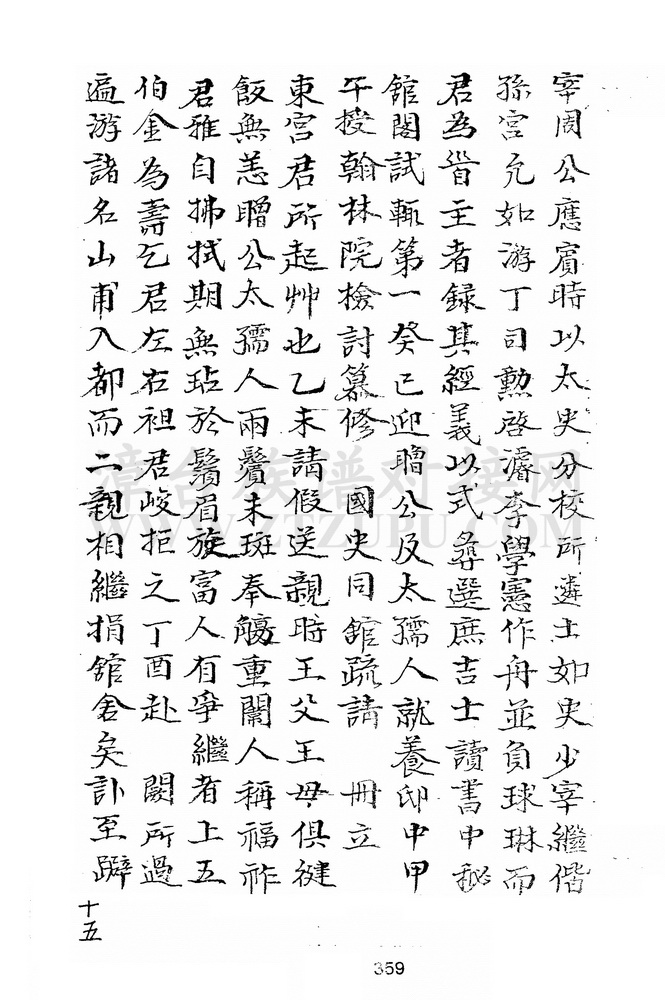 宰周公應賓時以太史分校所遴士如史少宰繼偕
孫宮允如游丁司勲啓濬李學憲作舟並負球琳而
君為首主者録其經義以式彞選庶吉士讀書中秘
舘閣試輒第一癸巳迎贈公及太孺人就養邸中甲
午授翰林院檢討纂修 國史同舘疏請 冊立
東宮君所起艸也乙未請假送親時王父王母俱健
飯無恙贈公太孺人兩鬢未斑奉觴重闈人稱福祚
君雅自拂拭期無玷於鬚眉族富人有爭繼者上五
伯金為壽乞君左右袒君峻拒之丁酉赴 闕所過
遍游諸名山甫入都而二親相繼捐舘舍矣訃至躃
十五
359
漳台族谱对接网
WWW.ZTZUPU.COM